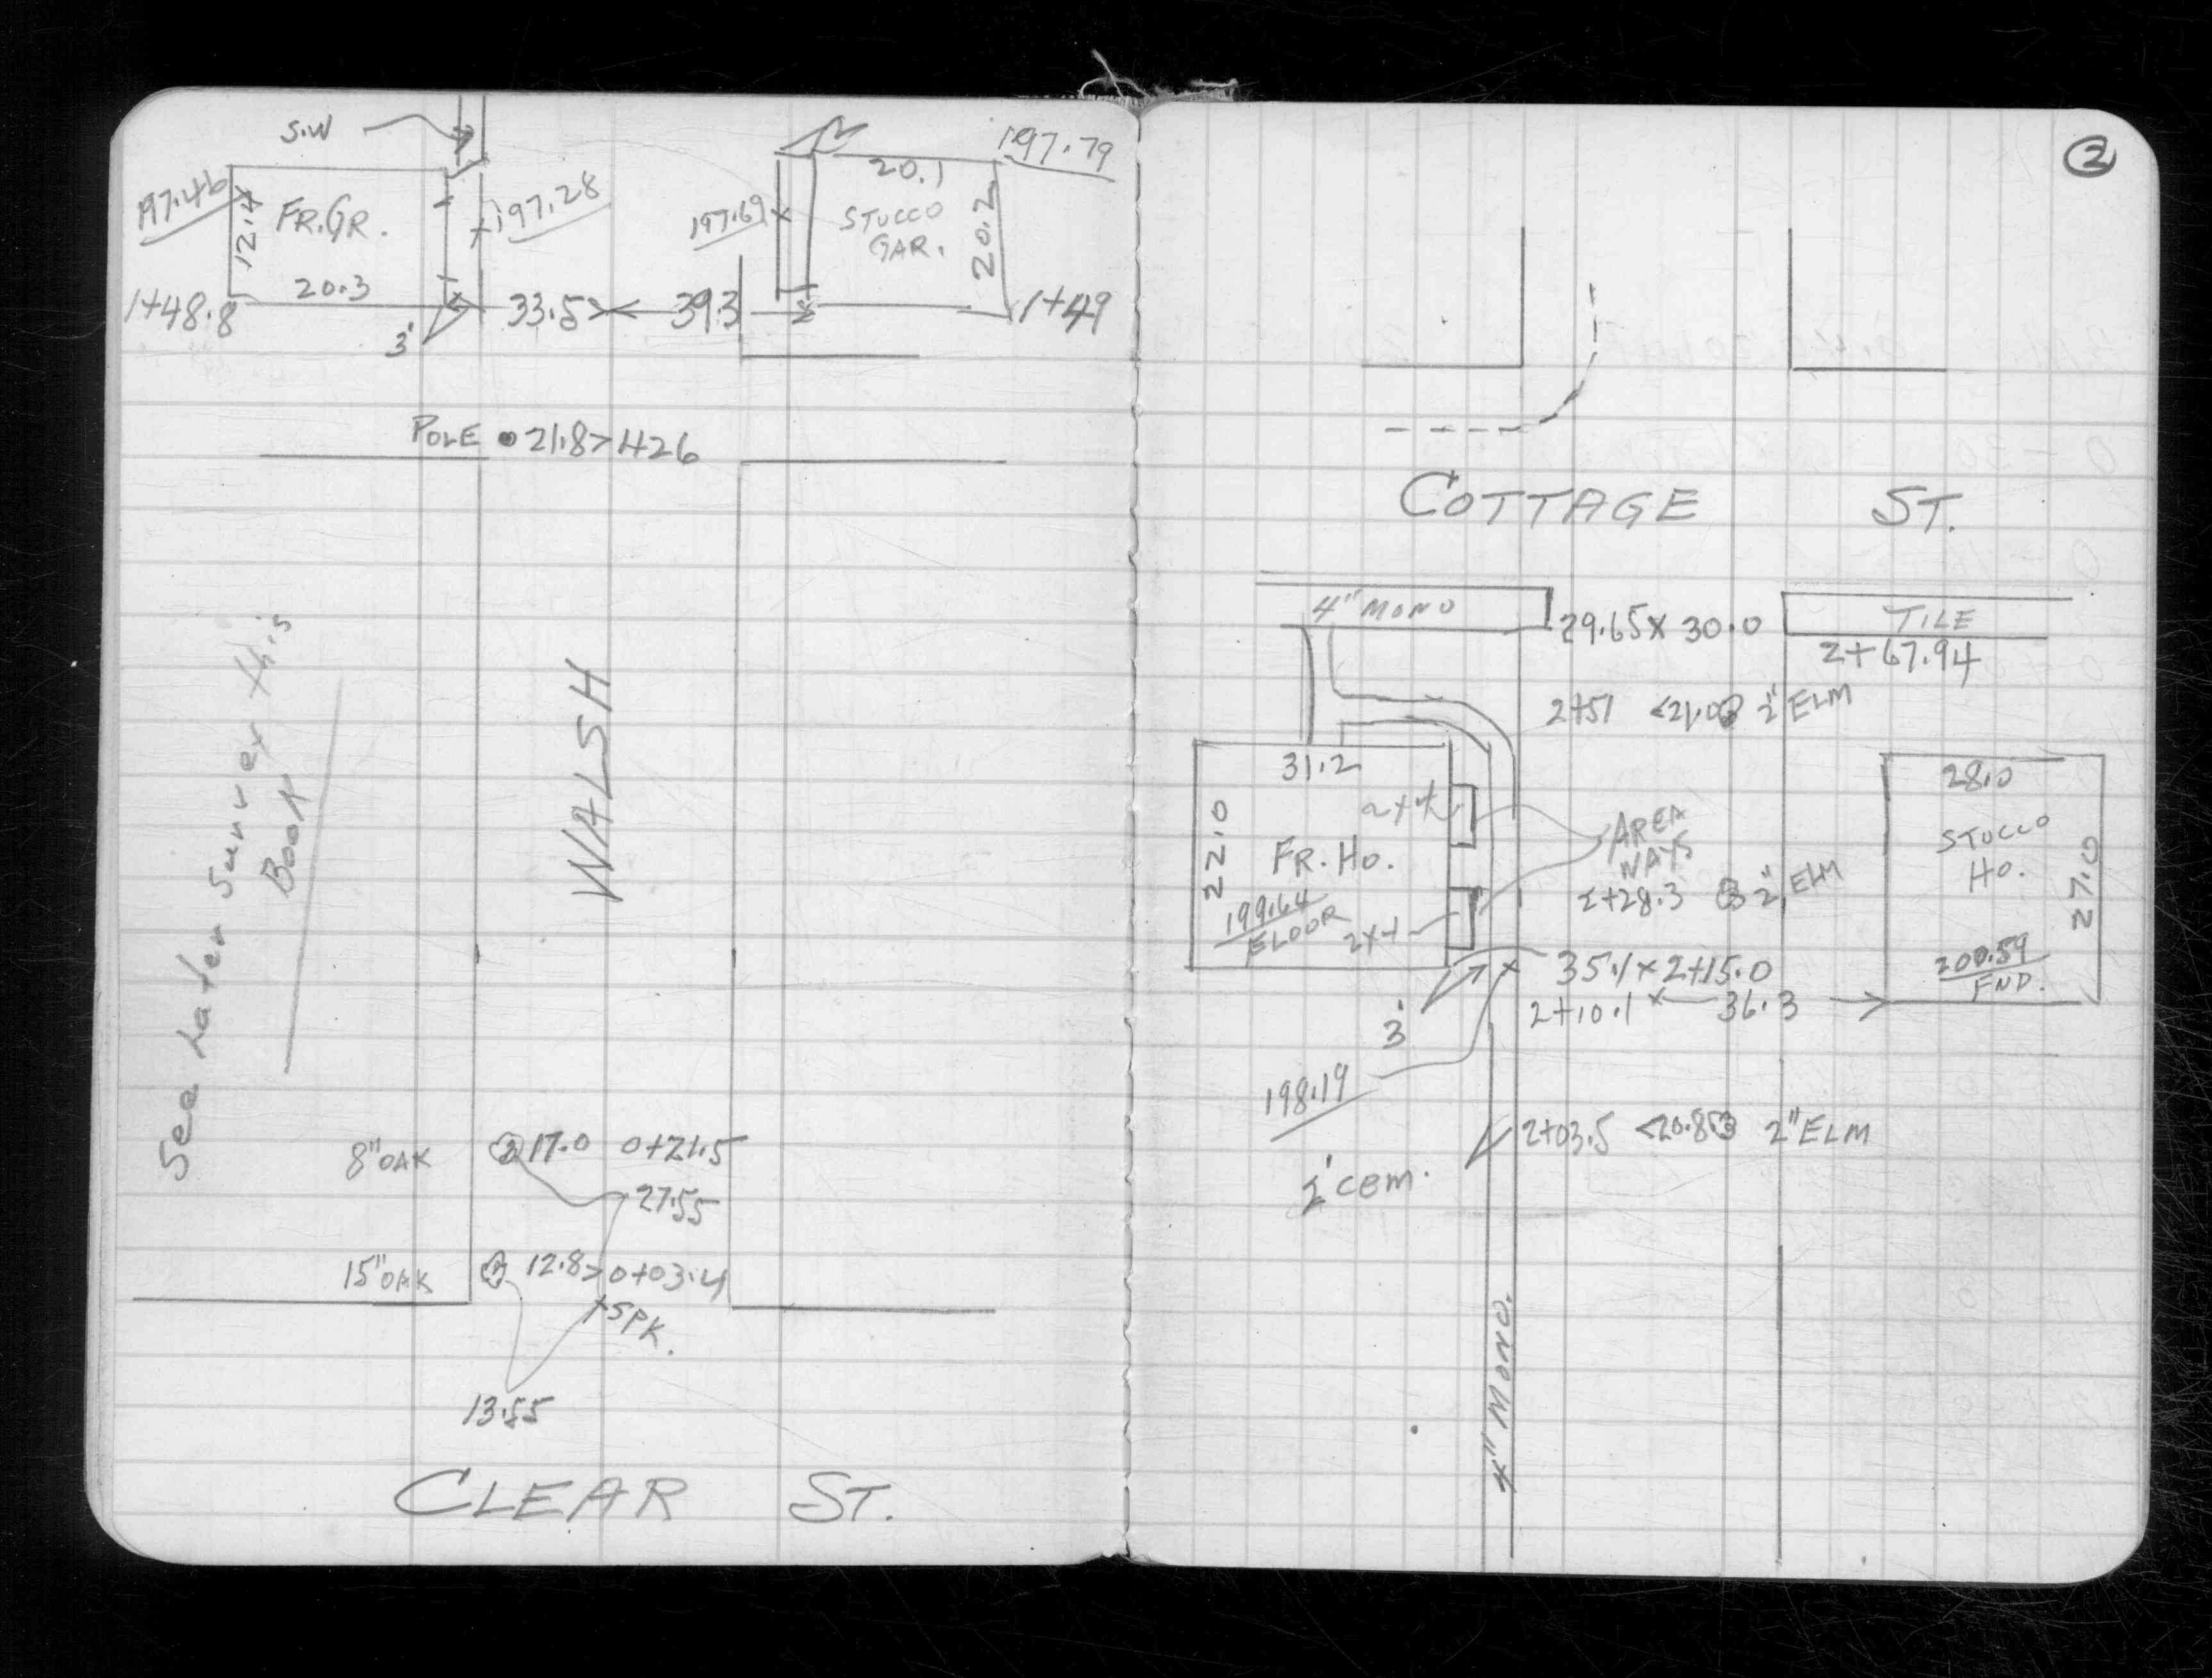 S.W
197.79
197.46
12.4
FR.GR.
197.28
197.69
20.1
STUCCO
GAR.
20.2
20.3
1+48.8
33.5
39.3
1+49
3'
POLE 21.8 > 1+26
WALSH
See Later Survey this
Book
8" OAK 17.0 0+21.5
27.55
15" OAK 12.8 > 0+03.4
SPK.
13.55
CLEAR ST.
2
COTTAGE ST.
4" MONO
29.65 x 30.0
TILE
2+67.94
2+51 <21.0 2" ELM
31.2
28.0
22.0
2x4
AREA
WAYS
STUCCO
HO.
FR. HO.
27.0
2+28.3 2" ELM
199.64
FLOOR
2x4
200.59
FND.
35.1 x 2+15.0
2+10.1 x 36.3
3'
198.19
2+03.5 <20.8 2" ELM
cem.
4" MONO.